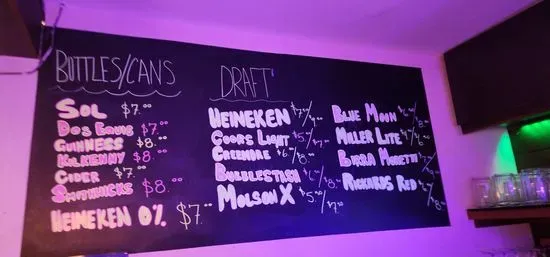 BOTTLES/CANS
SOL $7.00
DOS EQUIS $7.00
GUINNESS $8.00
KILKENNY $8.00
CIDER $7.00
SMITHWICKS $8.00
HEINEKEN 0% $7.00
DRAFT
HEINEKEN $7/9
COORS LIGHT $5/7
CREEMORE $6/8
BUBBLESTASH $6/8
MOLSON X $5.00/$7.00
BLUE MOON $6/8
MILLER LITE $4/6
BIRRA MORETTI $7/9
RICKARDS RED $6/8